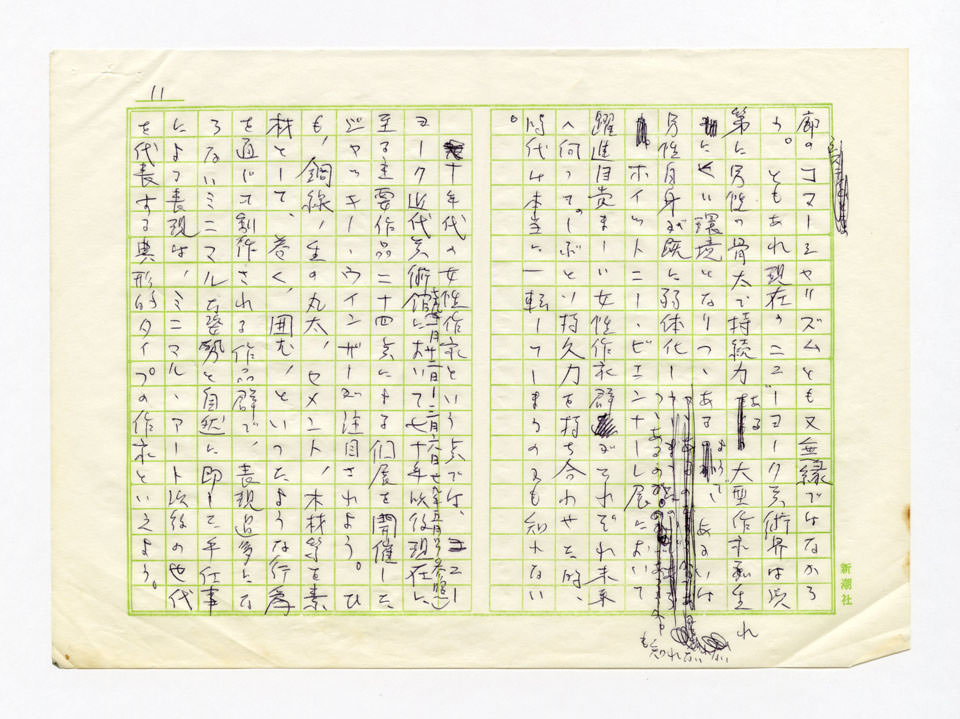 11
廓のコマーシャリズムとも又無縁ではなかろ
う。ともあれ現在のニューヨーク美術界は次
第に男性の骨太で持続力ある大型作家が生れ
にくい環境となりつつあるようで、あるいは
男性自身が既に弱体化し
も知れない
ホイットニー・ビエンナーレ展において
躍進目貴ましい女性作家群がそれぞれ未来
へ向ってしぶとい持久力を持ち合わせた時、
時代は本当に一転してしまうのかも知れない
。
十年代の女性作家という点では、ニュー
ヨーク近代美術館において七十年以後現在に
至る主要作品二十四点による個展を開催した
ジャッキー・ウインザーが注目されよう。ひ
も、銅線、生の丸太、セメント、木材等を素
材として、巻く、囲む、といったような行為
を通じて制作される作品群で、表現過多にな
らないミニマルな姿勢と自然に即した手仕事
による表現は、ミニマル・アート以後の世代
を代表する典形的タイプの作家といえよう。
新潮社